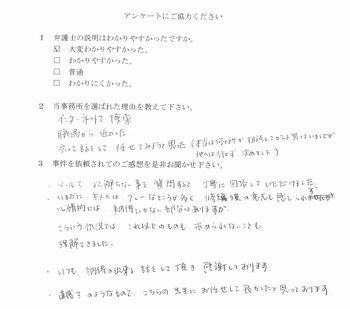 アンケートにご協力ください
1 弁護士の説明はわかりやすかったですか。
☑ 大変わかりやすかった。
□ わかりやすかった。
□ 普通
□ わかりにくかった。
2 当事務所を選ばれた理由を教えて下さい。
インターネットで検索
職場から近かった
会って話をして任せてみようと思った(本当は何ヶ所か相談してからと思っていましたが
他へは行かず決めました)
3 事件を依頼されてのご感想を是非お聞かせ下さい。
・メールでよく解らない事を質問すると丁寧に回答していただけました。
・いまだにグレーなところが多く
心情的には納得いかない部分はありますが、
こういう状況ではこれ以上のものも求められないことも
理解できました。
・いつも納得の出来る話をして頂き感謝しております
・直感のようなもので、こちらの先生にお任せして良かったと思っております